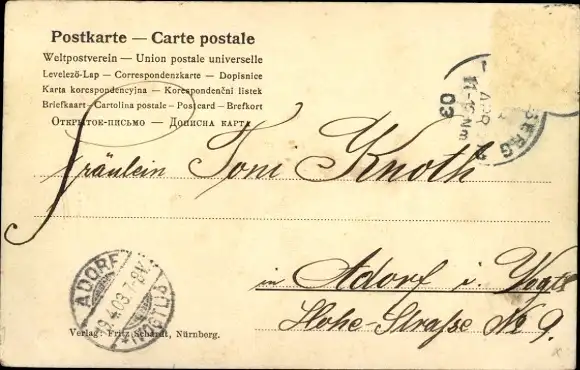 Postkarte — Carte postale
Weltpostverein — Union postale universelle
Levelező-Lap — Correspondenzkarte — Dopisnice
Karta korespondencyjna — Korespondenční lístek
Briefkaart — Cartolina postale — Postcard — Brefkort
Открытое-письмо — Дописна карта
BERG
APR
03
Fräulein Toni Knoth
in Adorf i. Vogtl
Hohe-Straße No 9.
ADORF
9.4.03.7-8V.
VOGTLD
Verlag: Fritz Schardt, Nürnberg.